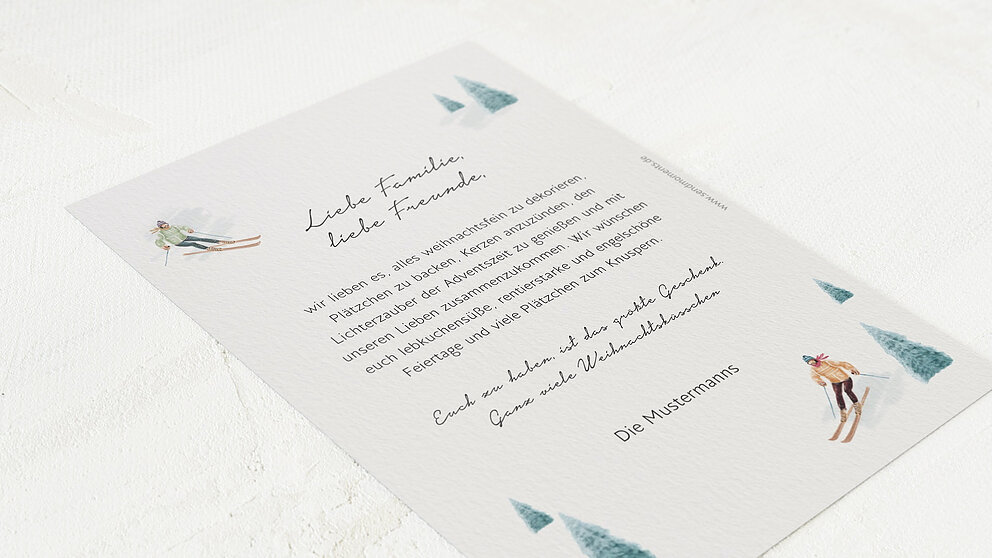 Liebe Familie,
liebe Freunde,
wir lieben es, alles weihnachtsfein zu dekorieren,
Plätzchen zu backen, Kerzen anzuzünden, den
Lichterzauber der Adventszeit zu genießen und mit
unseren Lieben zusammenzukommen. Wir wünschen
euch lebkuchensüße, rentierstarke und engelschöne
Feiertage und viele Plätzchen zum Knuspern.
Euch zu haben, ist das größte Geschenk.
Ganz viele Weihnachtsküsschen
Die Mustermanns
www.sendmoments.de